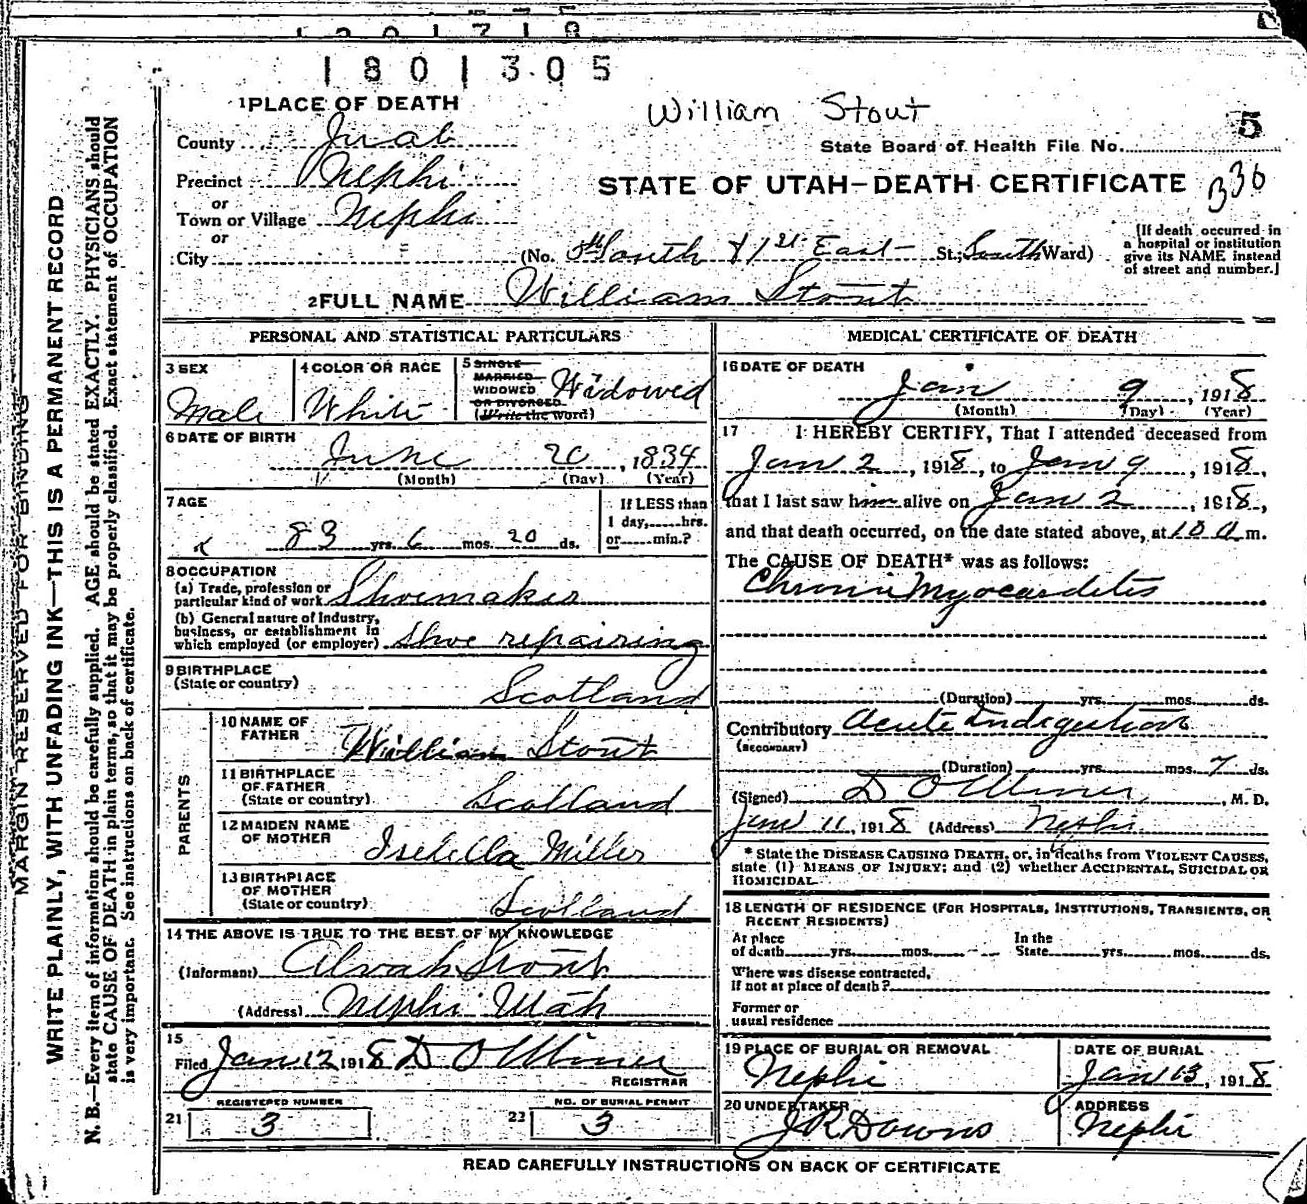 1801305
William Stout
5
1 PLACE OF DEATH
State Board of Health File No.
County Juab
Precinct Nephi
STATE OF UTAH—DEATH CERTIFICATE 336
or
Town or Village Nephi
or
City (No. South & 1st East St.; South Ward)
(If death occurred in a hospital or institution give its NAME instead of street and number.)
2 FULL NAME William Stout
PERSONAL AND STATISTICAL PARTICULARS
3 SEX
Male
4 COLOR OR RACE
White
5 SINGLE
MARRIED
WIDOWED
OR DIVORCED
(Write the word)
Widowed
6 DATE OF BIRTH
June 20, 1834
(Month) (Day) (Year)
7 AGE
83 yrs. 6 mos. 20 ds.
If LESS than
1 day,......hrs.
or......min.?
8 OCCUPATION
(a) Trade, profession or
particular kind of work Shoemaker
(b) General nature of Industry,
business, or establishment in
which employed (or employer) Shoe repairing
9 BIRTHPLACE
(State or country)
Scotland
PARENTS
10 NAME OF
FATHER William Stout
11 BIRTHPLACE
OF FATHER
(State or country) Scotland
12 MAIDEN NAME
OF MOTHER Isebella Miller
13 BIRTHPLACE
OF MOTHER
(State or country) Scotland
14 THE ABOVE IS TRUE TO THE BEST OF MY KNOWLEDGE
(Informant) Alvah Stout
(Address) Nephi Utah
15
Filed Jan 12 1918 D O Miner
REGISTRAR
REGISTERED NUMBER
21 3
NO. OF BURIAL PERMIT
22 3
MEDICAL CERTIFICATE OF DEATH
16 DATE OF DEATH
Jan 9, 1918
(Month) (Day) (Year)
17 I HEREBY CERTIFY, That I attended deceased from
Jan 2, 1918, to Jan 9, 1918,
that I last saw him alive on Jan 2, 1918,
and that death occurred, on the date stated above, at 10 a m.
The CAUSE OF DEATH* was as follows:
Chronic Myocardites
(Duration) yrs. mos. ds.
Contributory Acute Indigestion
(SECONDARY)
(Duration) yrs. mos. 7 ds.
(Signed) D O Miner, M. D.
Jan 11, 1918 (Address) Nephi
* State the DISEASE CAUSING DEATH, or, in deaths from VIOLENT CAUSES,
state (1) MEANS OF INJURY; and (2) whether ACCIDENTAL, SUICIDAL OR
HOMICIDAL.
18 LENGTH OF RESIDENCE (FOR HOSPITALS, INSTITUTIONS, TRANSIENTS, OR
RECENT RESIDENTS)
At place
of death......yrs......mos......
In the
State......yrs......mos......ds.
Where was disease contracted,
If not at place of death?
Former or
usual residence
19 PLACE OF BURIAL OR REMOVAL
Nephi
DATE OF BURIAL
Jan 13, 1918
20 UNDERTAKER
J R Downs
ADDRESS
Nephi
READ CAREFULLY INSTRUCTIONS ON BACK OF CERTIFICATE
MARGIN RESERVED FOR BINDING
WRITE PLAINLY, WITH UNFADING INK—THIS IS A PERMANENT RECORD
N. B.—Every item of information should be carefully supplied. AGE should be stated EXACTLY. PHYSICIANS should
state CAUSE OF DEATH in plain terms, so that it may be properly classified. Exact statement of OCCUPATION
is very important. See instructions on back of certificate.